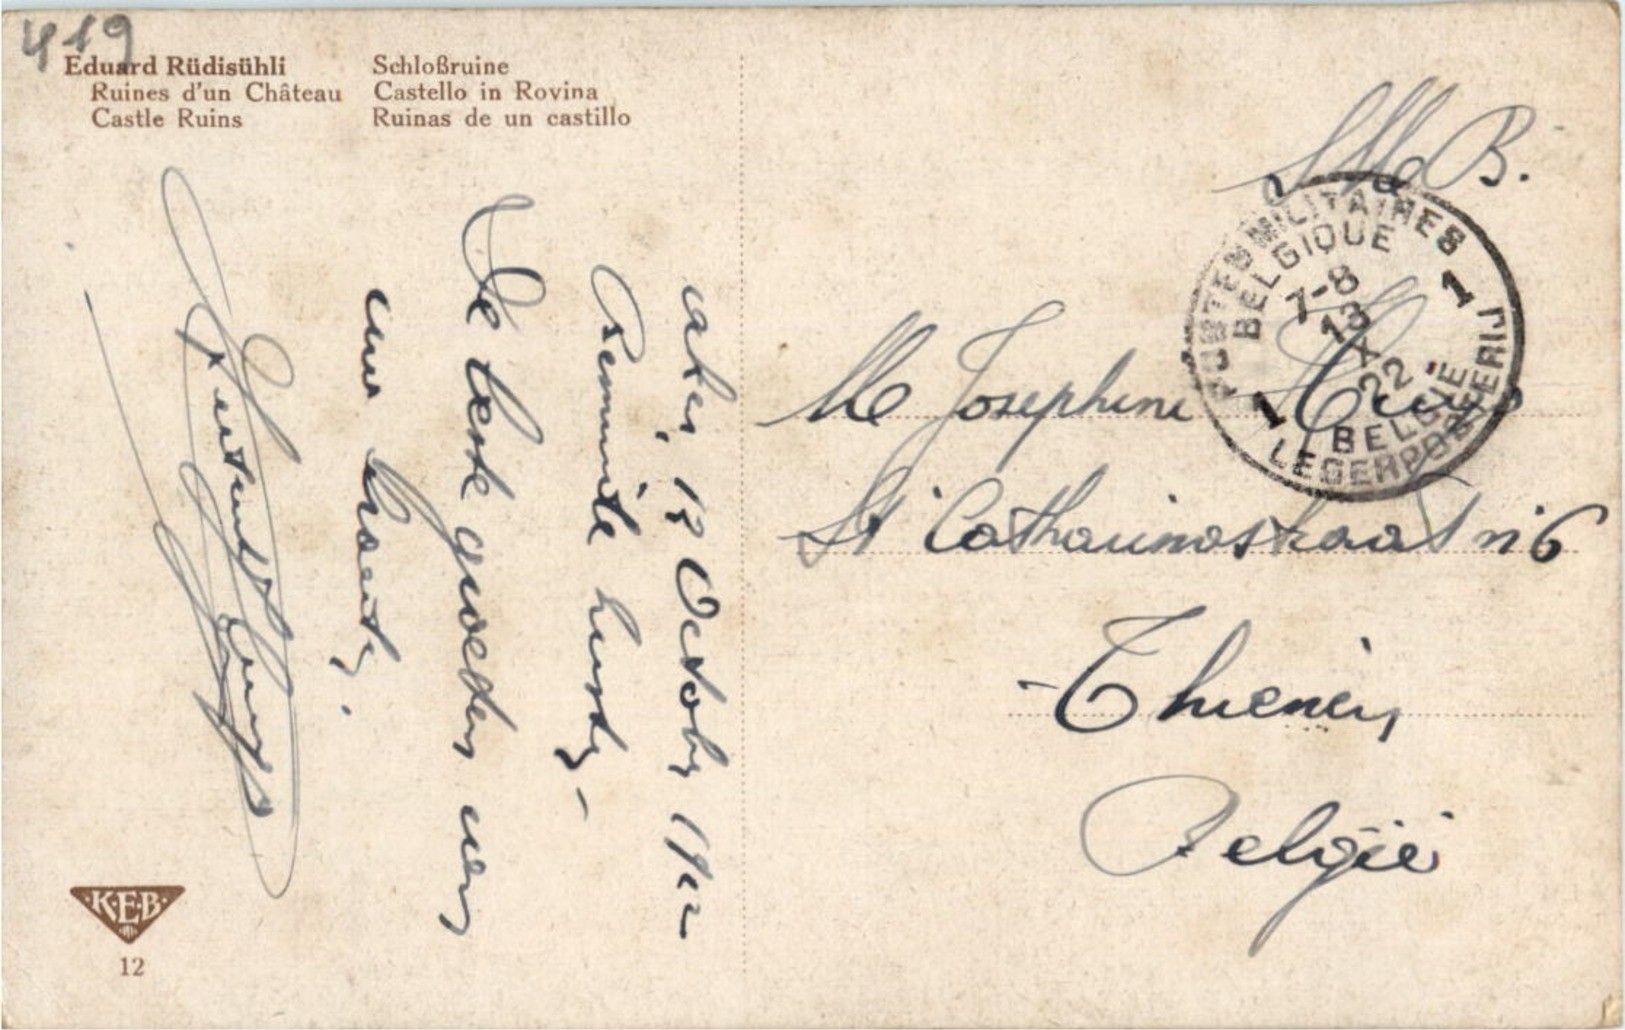 419
Eduard Rüdisühli
Ruines d'un Château
Castle Ruins
Schloßruine
Castello in Rovina
Ruinas de un castillo
S.M. B.
POSTES MILITAIRES
BELGIQUE
7-8
13
X
22
1 1
BELGIE
LEGERPOSTERIJ
Josephine
St Catharinastraat n 6
Thienen
België
Aken, 12 October 1922
Beminde
De beste groeten van
uw
K.E.B.
12